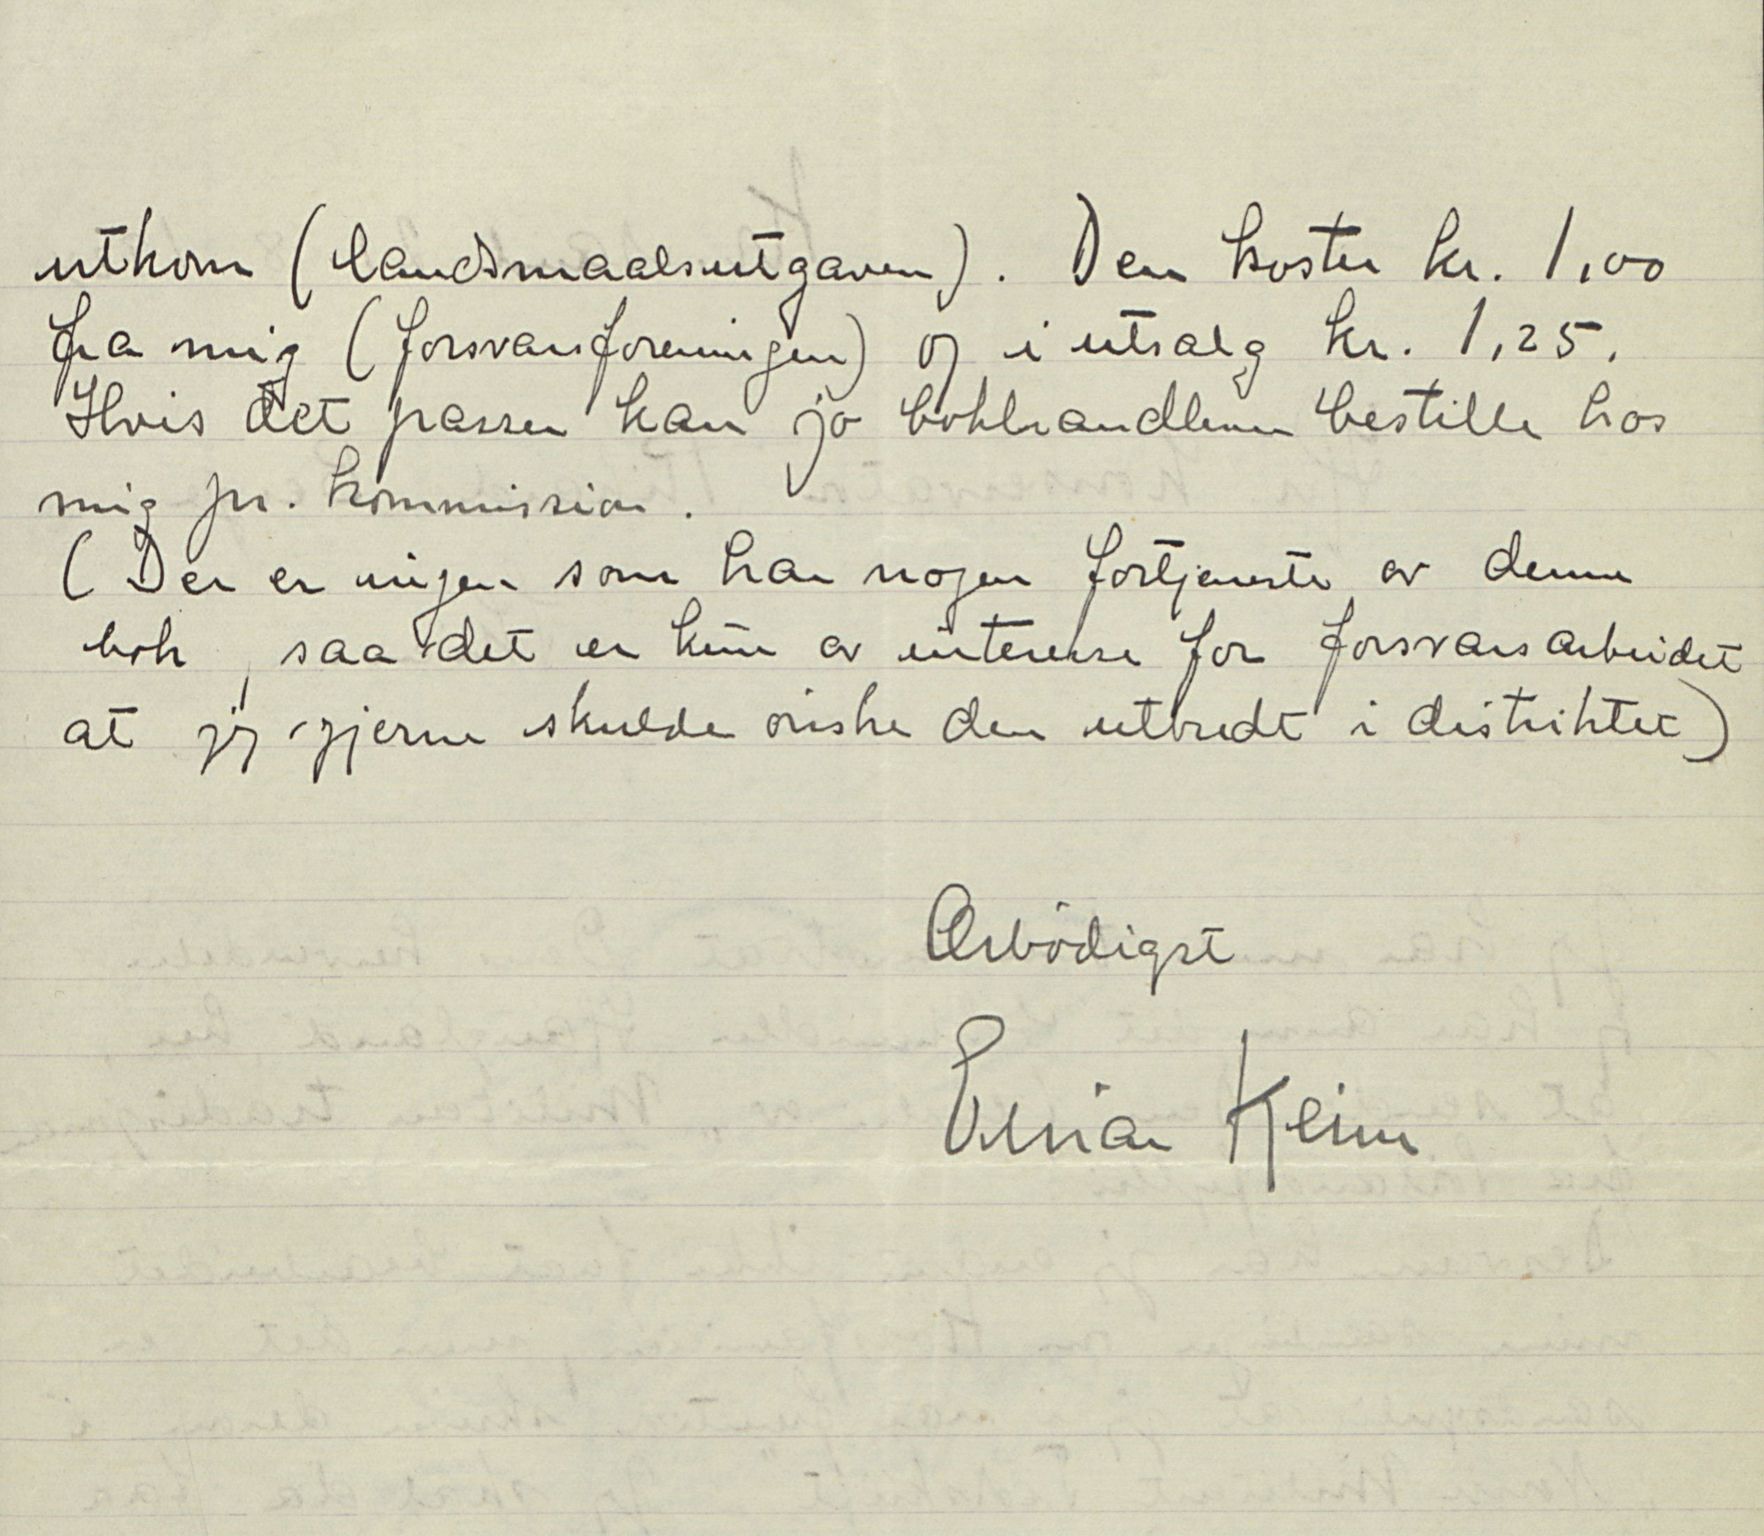 utkom (landsmaalsutgaven). Den koster kr. 1,00
fra mig (forsvarsforeningen) og i utsalg kr. 1,25.
Hvis det passer kan jo bokhandleren bestille hos
mig pr. kommission.
(Der er ingen som har nogen fortjeneste av denne
bok, saa det er kun av interesse for forsvarsarbeidet
at jeg gjerne skulde ønske den utbredt i distriktet)
Ærbødigst
Einar Kleim